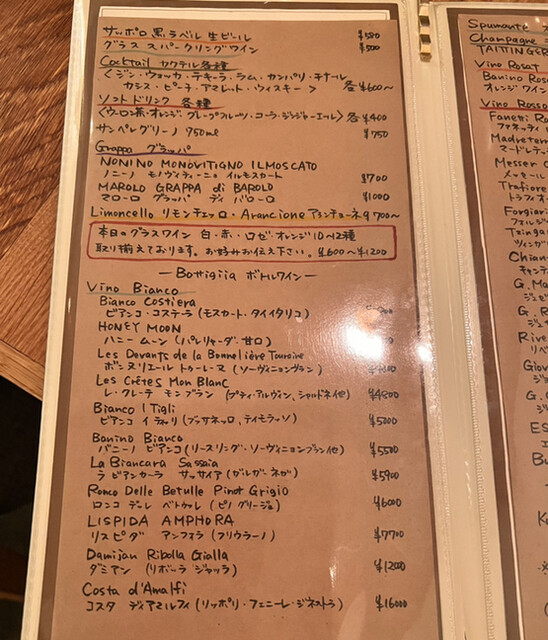 サッポロ黒ラベル 生ビール ¥580
グラス スパークリングワイン ¥500
Cocktail カクテル各種
<ジン・ウォッカ・テキーラ・ラム・カンパリ・チナール
カシス・ピーチ・アマレット・ウィスキー> 各¥600~
ソフトドリンク 各種
<ウーロン茶・オレンジ・グレープフルーツ・コーラ・ジンジャーエール> 各¥400
サンペレグリーノ 750ml ¥750
Grappa グラッパ
NONINO MONOVITIGNO ILMOSCATO
ノニーノ モノヴィティーニョ イルモスカート ¥700
MAROLO GRAPPA di BAROLO
マローロ グラッパ ディ バローロ ¥1000
Limoncello リモンチェッロ・Arancione アランチョーネ 各700~
本日のグラスワイン 白・赤・ロゼ・オレンジ10~12種
取り揃えております。お好みお伝え下さい。¥600~¥1200
—Bottiglia ボトルワイン—
Vino Bianco
Bianco Costiera
ビアンコ・コステーラ (モスカート・タイイタリコ)
HONEY MOON
ハニー ムーン (パレリャーダ、甘口)
Les Devants de la Bonnelière Touraine
ボンヌリエール トゥーレーヌ (ソーヴィニョンブラン)
Les Crêtes Mon Blanc
レ・クレーテ モン ブラン (プティアルヴィン、シャルドネ他) ¥4800
Bianco I Tigli
ビアンコ イ ティリ (ブッサネッロ、ティモラッソ) ¥5000
Banino Bianco
バニーノ ビアンコ (リースリング・ソーヴィニョンブラン他) ¥5500
La Biancara Sassaia
ラ ビアンカーラ サッサイア (ガルガーネガ) ¥5900
Ronco Delle Betulle Pinot Grigio
ロンコ デーレ ベトゥッレ (ピノ グリージョ) ¥6000
LISPIDA AMPHORA
リスピダ アンフォラ (フリウラーノ) ¥7700
Damijan Ribolla Gialla
ダミアン (リボーラ ジャッラ) ¥12000
Costa d'Amalfi
コスタ ディアマルフィ (リッポリ・フェニーレ・ジネストラ) ¥16000
Spumante
Champagne
TAITTINGER
Vino Rosat
Banino Ros
オレンジ ワイン
Vino Rosso
Fanetti Ro
ファネッティ
Madreter
マードレテッ
Messer C
メッセール
Trafiore
トラフィオ
Forgiar
フォルジャー
Tzingar
ツィンガ
Chian
キャンテ
G. Ma
ジュゼ
G. R
ジュゼ
Rive
リベ
Giov
ジョ
G. C
ジュ